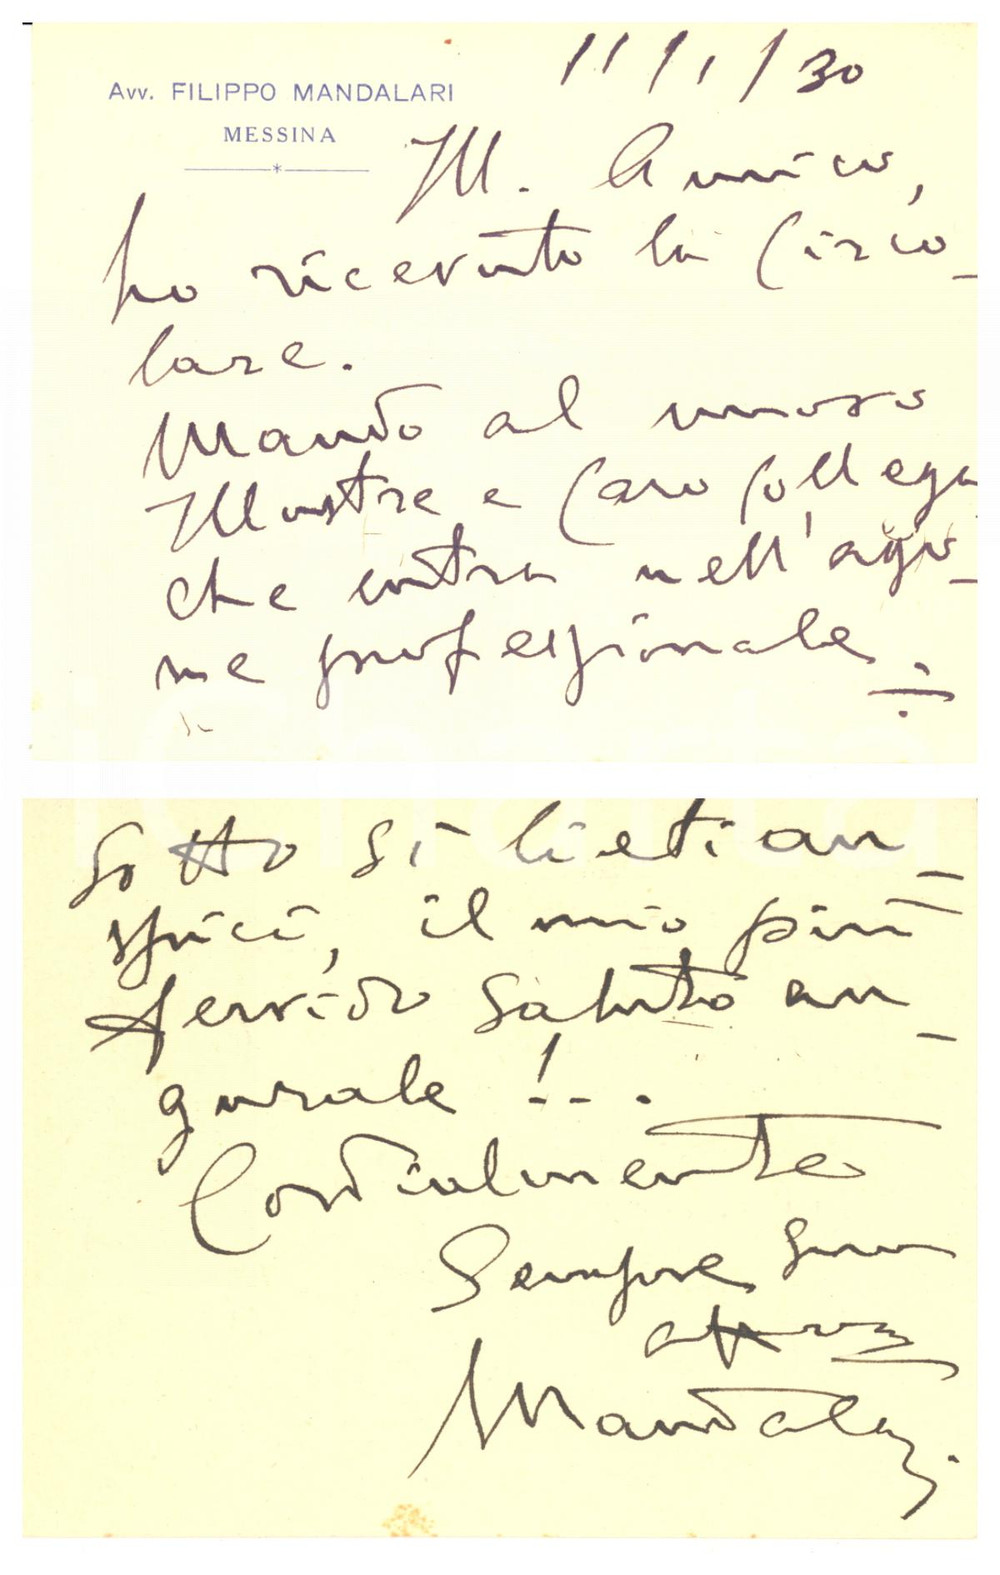 Avv. FILIPPO MANDALARI
MESSINA
11/1/30
Ill. Amico,
ho ricevuto la Circo-
lare.
Mando al nuovo
Illustre e Caro Collega
che entra nell'ago-
ne professionale.
sotto sì lieti au-
spici, il mio più
fervido saluto au-
gurale!...
Cordialmente
Sempre suo
Mandalari.